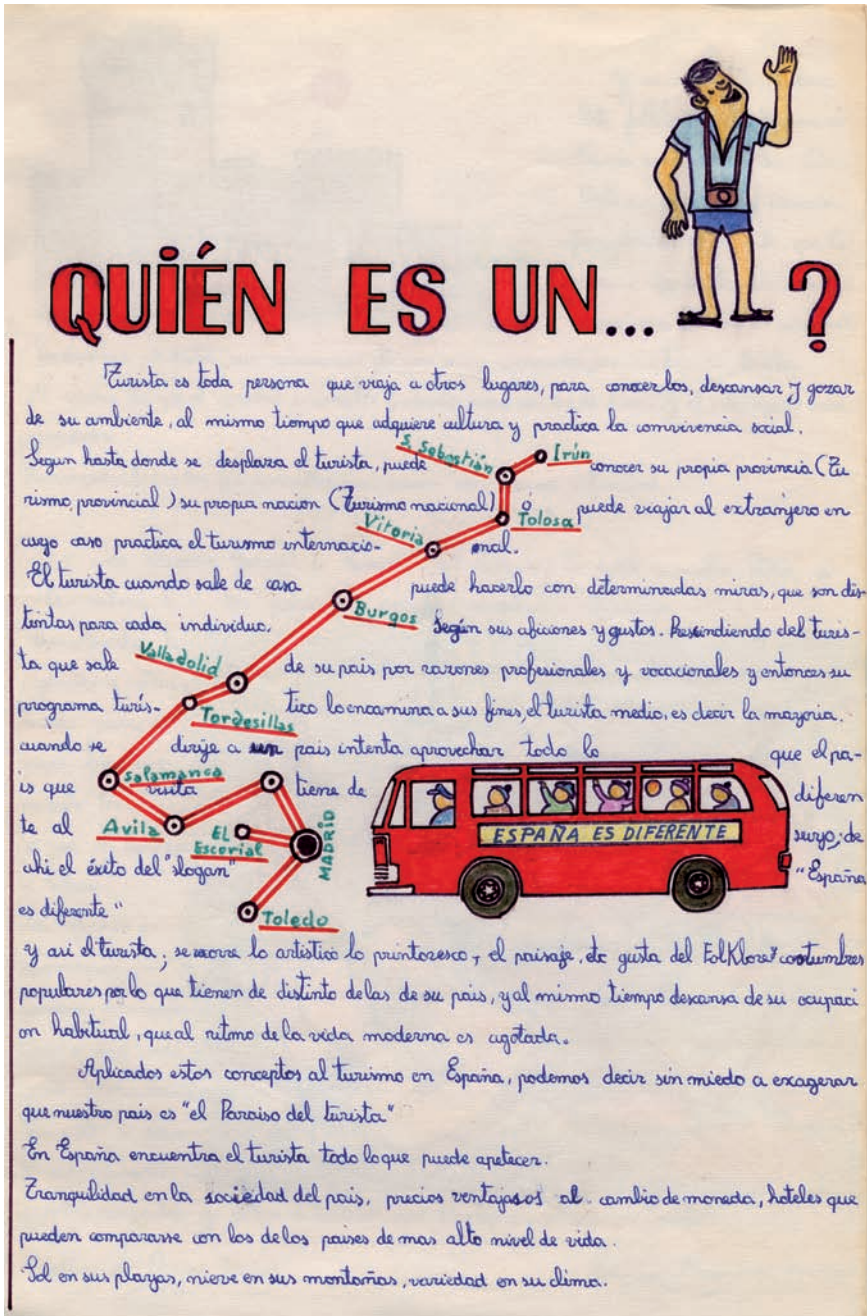 QUIÉN ES UN... ?
Turista es toda persona que viaja a otros lugares, para conocerlos, descansar y gozar
de su ambiente, al mismo tiempo que adquiere cultura y practica la convivencia social.
Segun hasta donde se desplaza el turista, puede conocer su propia provincia (Tu
rismo, provincial) su propia nacion (Turismo nacional) ó puede viajar al extranjero en
cuyo caso practica el turismo internacio- onal.
El turista cuando sale de casa puede hacerlo con determinadas miras, que son dis-
tintas para cada individuo. Según sus aficiones y gustos. Prescindiendo del turis-
ta que sale de su pais por razones profesionales y vocacionales y entonces su
programa turís- tico lo encamina a sus fines, el turista medio, es decir la mayoria.
cuando se dirije a un pais intenta aprovechar todo lo que el pa-
is que visita tiene de diferen
te al suyo; de
ahi el éxito del "slogan" "España
es diferente"
S. Sebastián
Irún
Tolosa
Vitoria
Burgos
Valladolid
Tordesillas
Salamanca
Avila
EL Escorial
MADRID
Toledo
ESPAÑA ES DIFERENTE
y asi el turista; se lo artistico lo printoresco, el paisaje, etc gusta del Folklore y costumbres
populares por lo que tienen de distinto de las de su pais, y al mismo tiempo descansa de su ocupaci
on habitual, que al ritmo de la vida moderna es agotada.
Aplicados estos conceptos al turismo en España, podemos decir sin miedo a exagerar
que nuestro pais es "el Paraiso del turista"
En España encuentra el turista todo lo que puede apetecer.
Tranquilidad en la sociedad del pais, precios ventajosos al cambio de moneda, hoteles que
pueden compararse con los de los paises de mas alto nivel de vida.
Sol en sus playas, nieve en sus montañas, variedad en su clima.